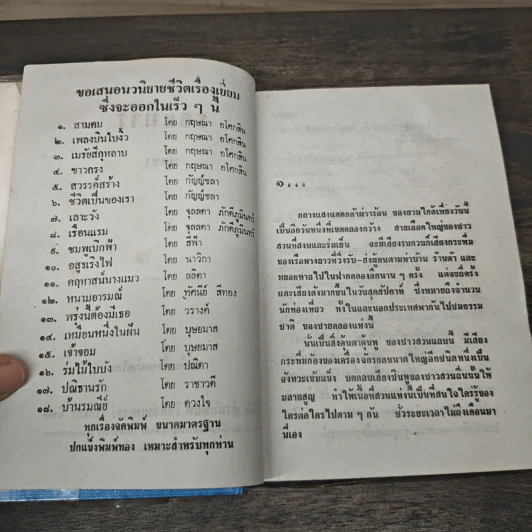 ขอเสนอนวนิยายชีวิตเรื่องเยี่ยม
ซึ่งจะออกในเร็ว ๆ นี้
๑. สามคม โดย กฤษณา อโศกสิน
๒. เพลงบินใบงิ้ว โดย กฤษณา อโศกสิน
๓. เมรัยสีกุหลาบ โดย กฤษณา อโศกสิน
๔. ชาวกรง โดย กฤษณา อโศกสิน
๕. สวรรค์สร้าง โดย กัญญ์ชลา
๖. ชีวิตเป็นของเรา โดย กัญญ์ชลา
๗. เลาะวัง โดย จุลลดา ภักดีภูมินทร์
๘. เรือนแรม โดย จุลลดา ภักดีภูมินทร์
๙. ชมพเบิกฟ้า โดย สีฟ้า
๑๐. อสูรเริงไฟ โดย นาวิกา
๑๑. คฤหาสน์นางแมว โดย ลลิตา
๑๒. หนามอารมณ์ โดย ทัศนีย์ สีทอง
๑๓. พรุ่งนี้ต้องมีเธอ โดย วรางค์
๑๔. เหมือนหนึ่งในฝัน โดย บุษยมาส
๑๕. เจ้าจอม โดย บุษยมาส
๑๖. ร่มไม้ใบบัง โดย ปณิตา
๑๗. ปณิธานรัก โดย ราชาวดี
๑๘. บ้านรมณีย์ โดย ดวงใจ
ทุกเรื่องจัดพิมพ์ ขนาดมาตรฐาน
ปกแข็งพิมพ์ทอง เหมาะสำหรับทุกท่าน
๑...
กลางแสงแดดกล้าร้าวร้อน ของยามใกล้เที่ยงวันนี้
เป็นอีกวันหนึ่งที่เขตคลองกว้าง สายเลือดใหญ่ของชาว
สวนที่สงบและร่มเย็น จะมีเสียงรบกวนก็เสียงกระหึ่ม
ของเรือหางยาวที่วิ่งรับ-ส่งผู้คนตามท่าบ้าน ร้านค้า และ
ทยอยหายไปในฟากคลองอีกนาน ๆ ครั้ง แต่จะถี่ครั้ง
และเสียงดังมากขึ้นในวันสุดสัปดาห์ ซึ่งหมายถึงจำนวน
นักท่องเที่ยว ทั้งในและนอกประเทศพากันไปชมธรรม
ชาติ ของชายคลองแห่งนี้
นั่นเป็นสิ่งคุ้นตาคุ้นหู ของชาวสวนแถบนี้ มีเสียง
กระหึ่มก้องของเครื่องจักรกลขนาดใหญ่อีกชนิดหนึ่งเป็น
จังหวะเข้มแข็ง บดกลบเสียงชินหูของชาวสวนถิ่นนั้นให้
มลายสูญ ทำให้เนื้อที่สวนแห่งนี้เป็นที่สนใจใคร่รู้ของ
ใครต่อใครไปตาม ๆ กัน ชั่วระยะเวลาไม่ถึงเดือนมา
นี่เอง